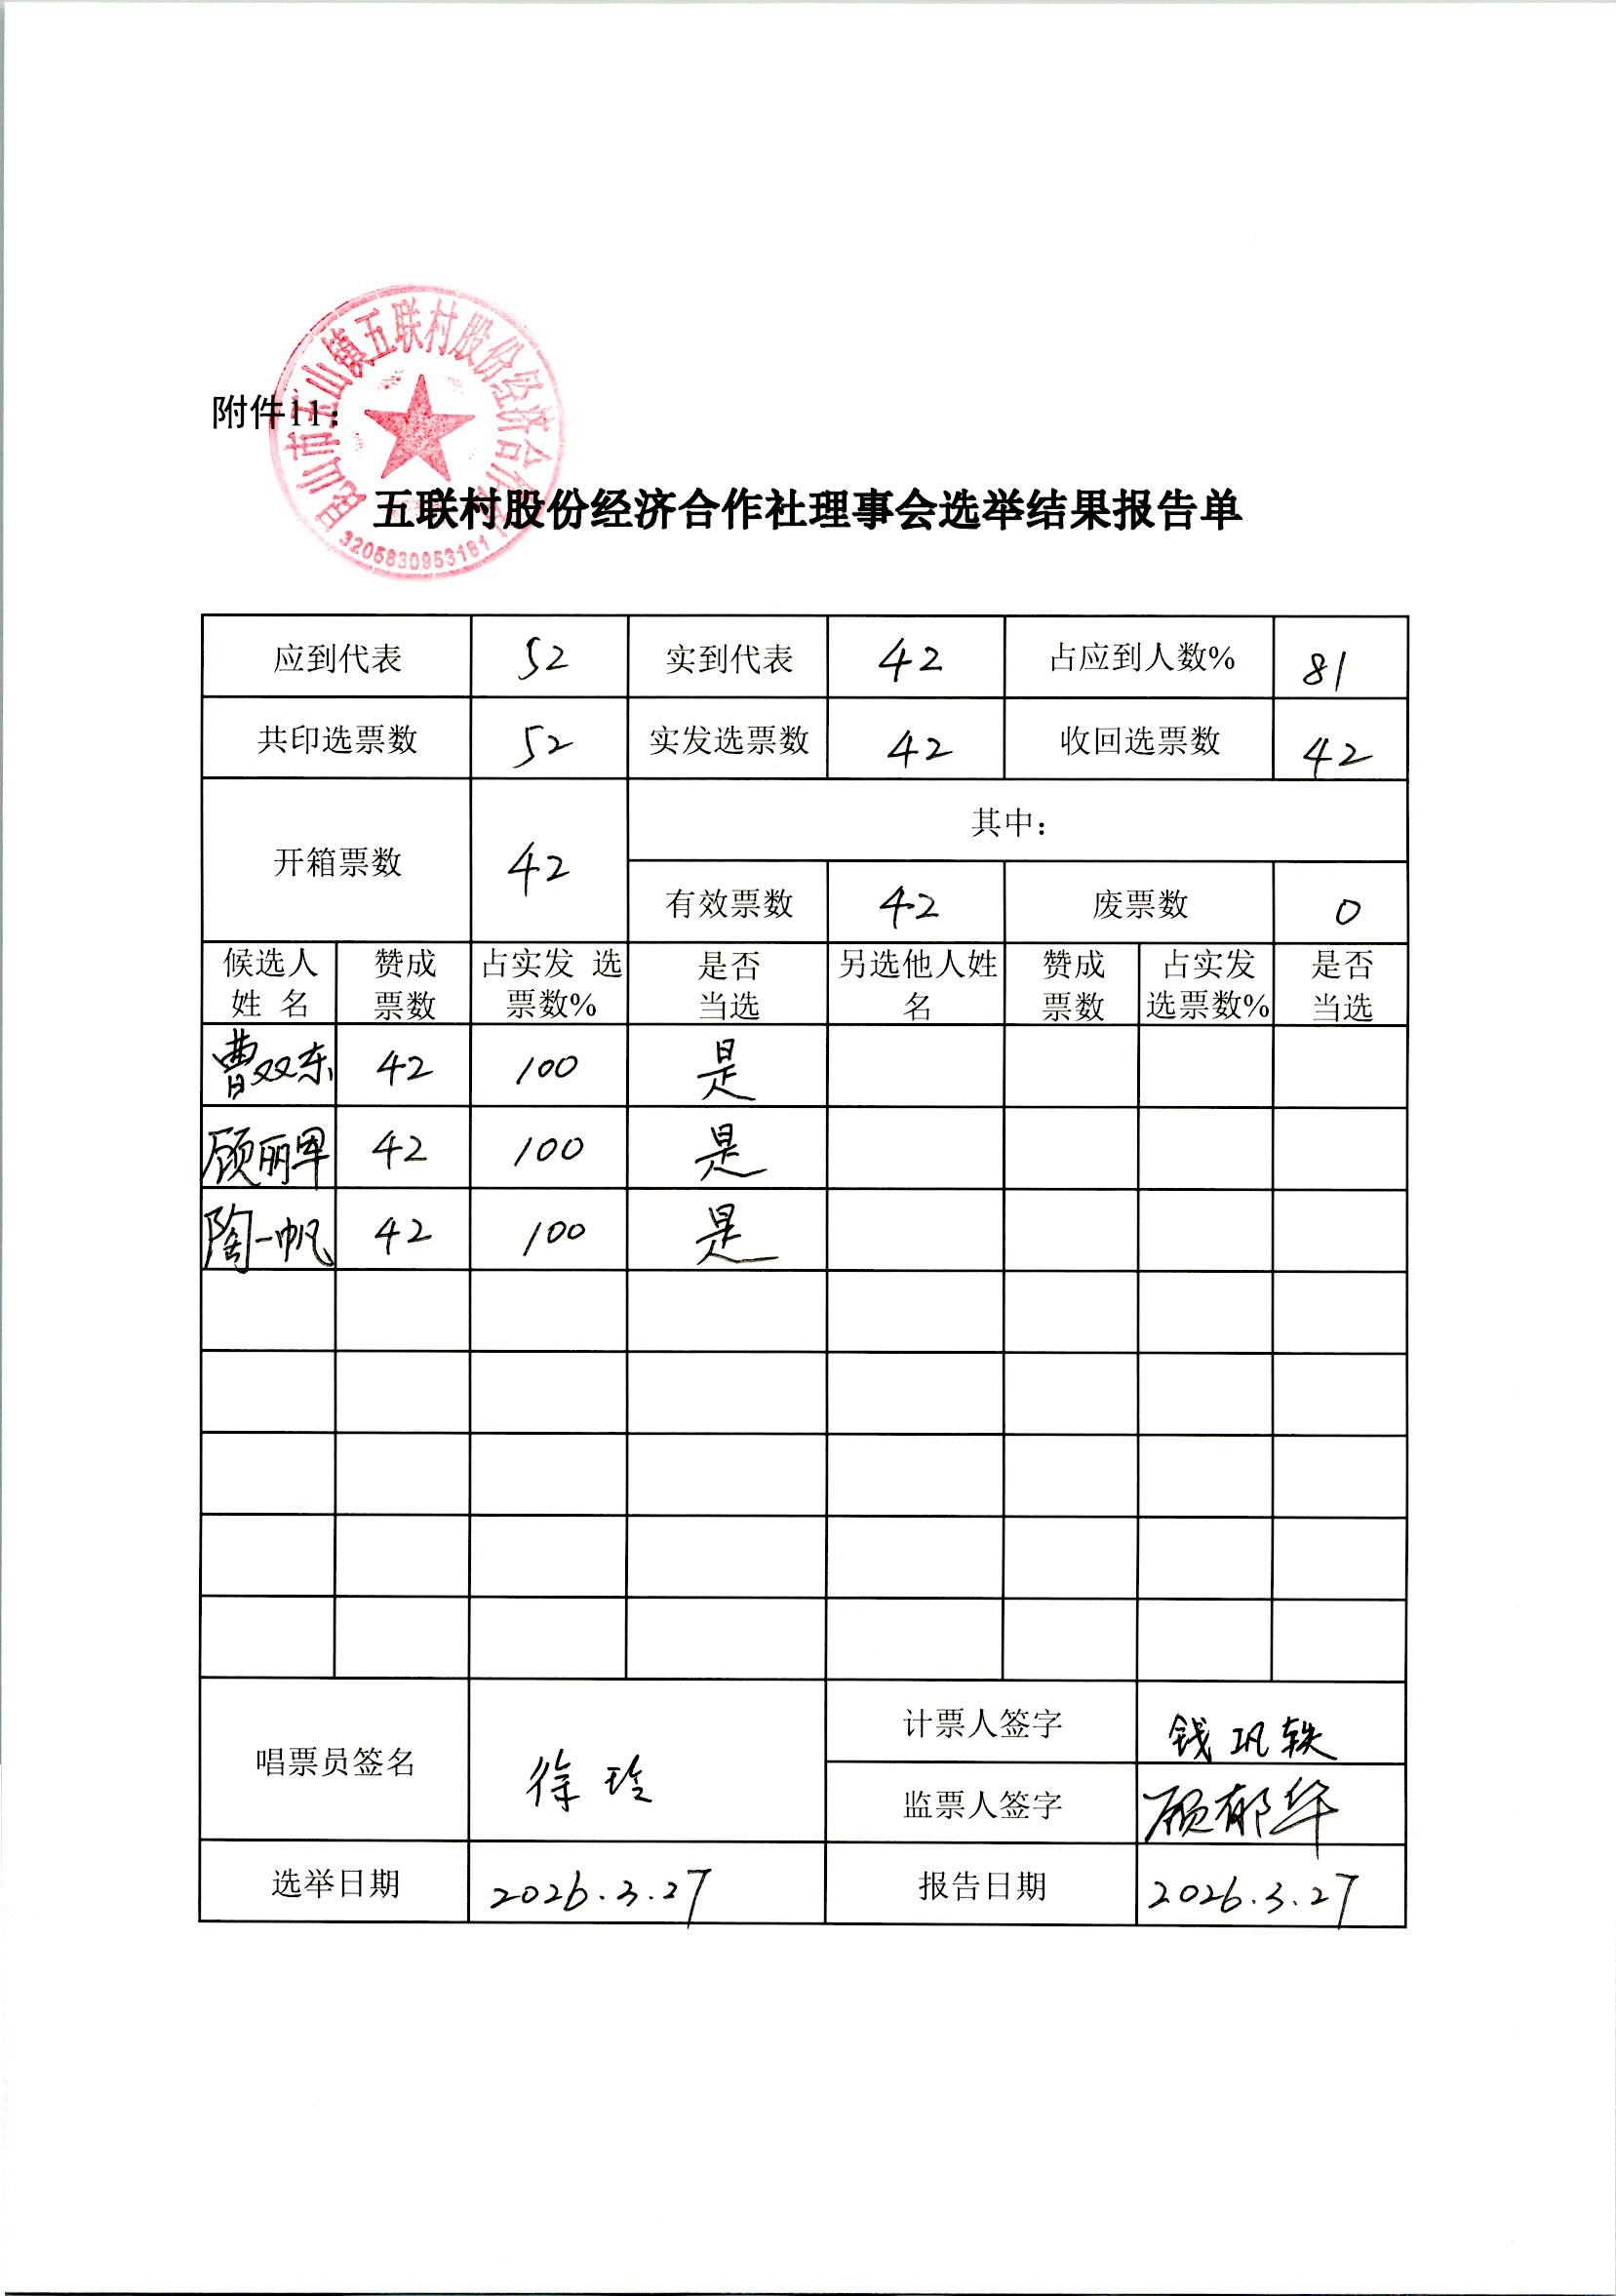 昆山市玉山镇五联村股份经济合作社
3205830953181
附件11：
五联村股份经济合作社理事会选举结果报告单
应到代表 52 实到代表 42 占应到人数% 81
共印选票数 52 实发选票数 42 收回选票数 42
开箱票数 42 其中：
有效票数 42 废票数 0
候选人姓 名 赞成票数 占实发 选票数% 是否当选 另选他人姓名 赞成票数 占实发选票数% 是否当选
曹双东 42 100 是
顾丽军 42 100 是
陶一帆 42 100 是
唱票员签名 徐玲 计票人签字 钱巩轶
监票人签字 顾郁华
选举日期 2026.3.27 报告日期 2026.3.27